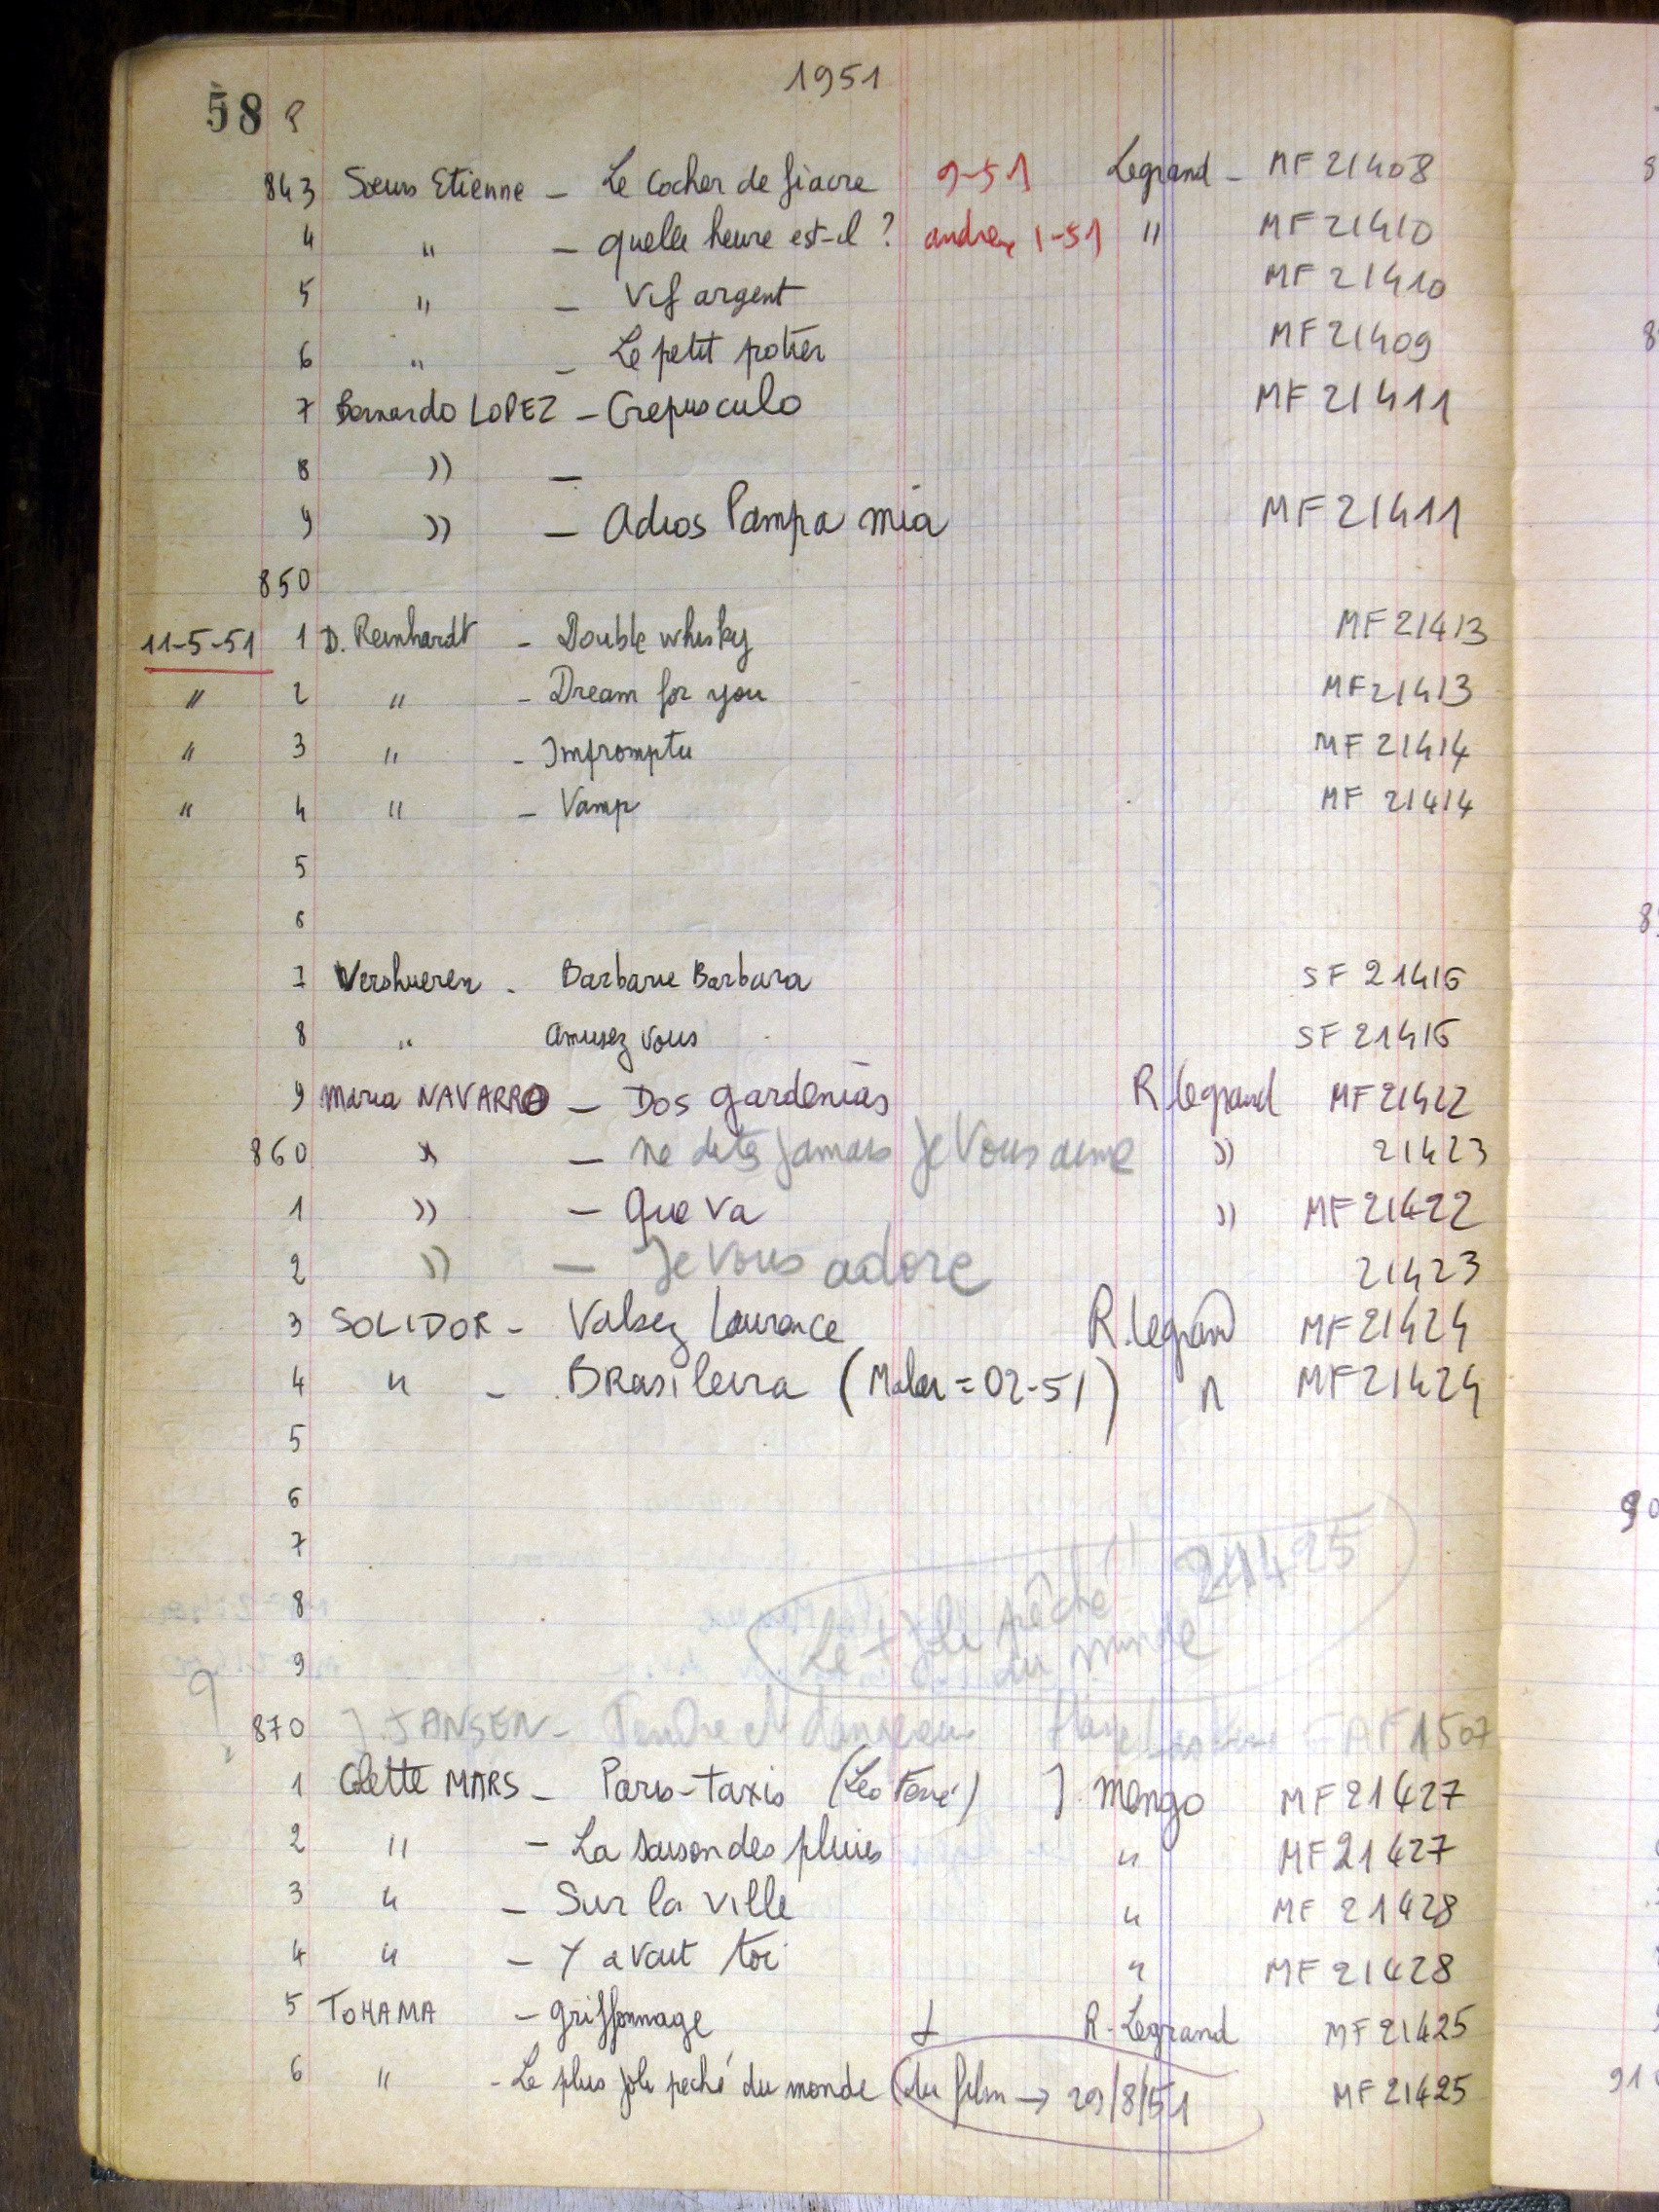 1951
58
843 Sœurs Etienne - Le cocher de fiacre 9-51 Legrand - MF 21408
4 " - quelle heure est-il ? andrex 1-51 " MF 21410
5 " - Vif argent MF 21410
6 " - Le petit potier MF 21409
7 Bernardo LOPEZ - Crepusculo MF 21411
8 )) -
9 )) - Adios Pampa mia MF 21411
850
11-5-51 1 D. Reinhardt - Double whisky MF 21413
" 2 " - Dream for you MF 21413
" 3 " - Impromptu MF 21414
" 4 " - Vamp MF 21414
5
6
7 Vershueren - Barbarie Barbara SF 21416
8 " Amusez vous SF 21416
9 Maria NAVARRO - Dos gardenias R Legrand MF 21422
860 )) - Ne dites jamais je vous aime )) 21423
1 )) - Que va )) MF 21422
2 )) - Je vous adore 21423
3 SOLIDOR - Valsez Laurence R. Legrand MF 21424
4 " - BRasileira (Malar = 02-51) " MF 21424
5
6
7
Le + joli pêché 21425
8
du monde
9
870 J. JANSEN - Tendre et dangereux AF 1507
1 Colette MARS - Paris-Taxis (Léo Ferré) J. Mengo MF 21427
2 " - La saison des pluies " MF 21427
3 " - Sur la ville " MF 21428
4 " - Y avait toi " MF 21428
5 TOHAMA - griffonnage R. Legrand MF 21425
6 " - Le plus joli peché du monde (du film → 29/8/51 MF 21425